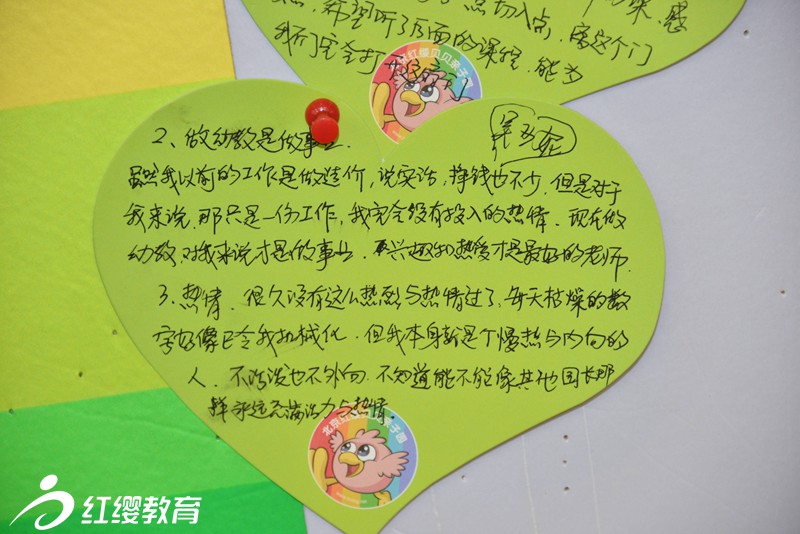 点切入点
希望听了后面的课程,能为
我们完全打开
2、做幼教是做事业.
虽然我以前的工作是做造价,说实话,挣钱也不少,但是对于
我来说,那只是一份工作,我完全没有投入的热情.现在做
幼教,对我来说才是做事业.兴趣和热爱才是最好的老师.
3、热情.很久没有这么热烈与热情过了,每天枯燥的数
字好像已令我机械化.但我本身就是个慢热与内向的
人.不活泼也不外向.不知道能不能像其他园长那
样永远充满活力与热情.
红缨教育